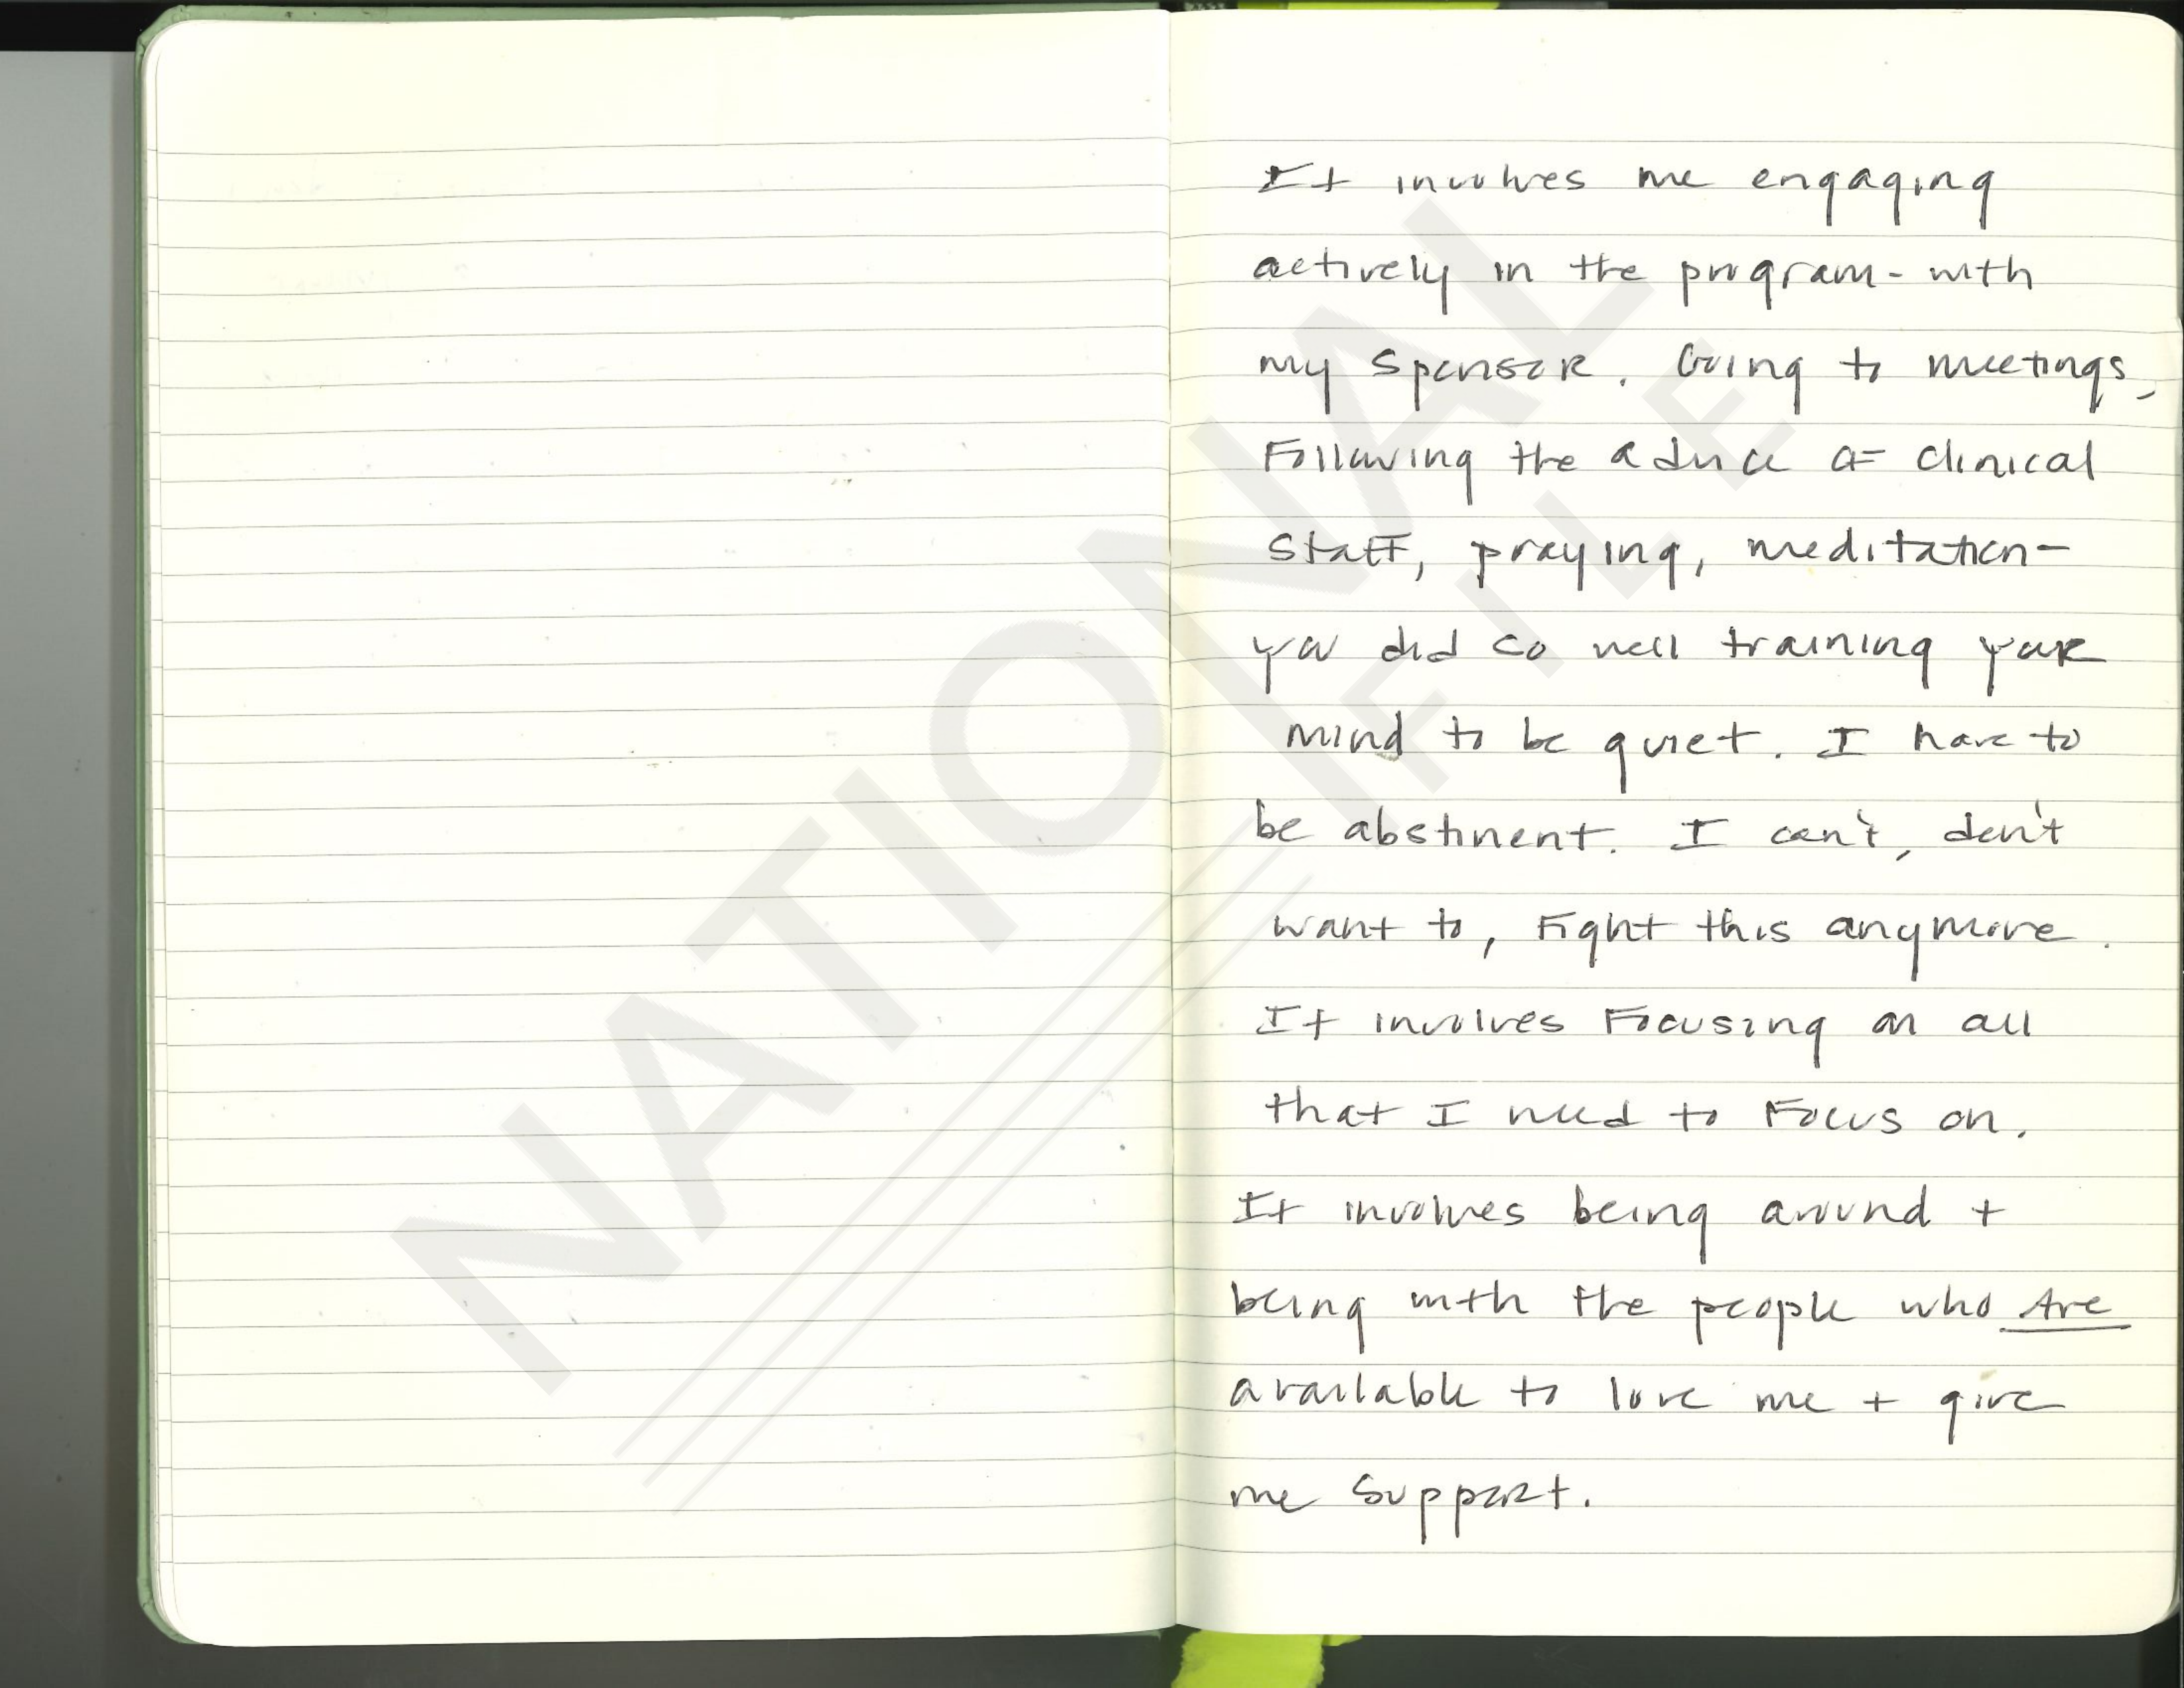 It involves me engaging
actively in the program - with
my sponsor. Going to meetings,
Following the advice of clinical
staff, praying, meditation -
you did so well training your
mind to be quiet. I have to
be abstinent. I can't, don't
want to, fight this anymore.
It involves Focusing on all
that I need to Focus on.
It involves being around +
being with the people who Are
available to love me + give
me support.
NATIONAL
FILE